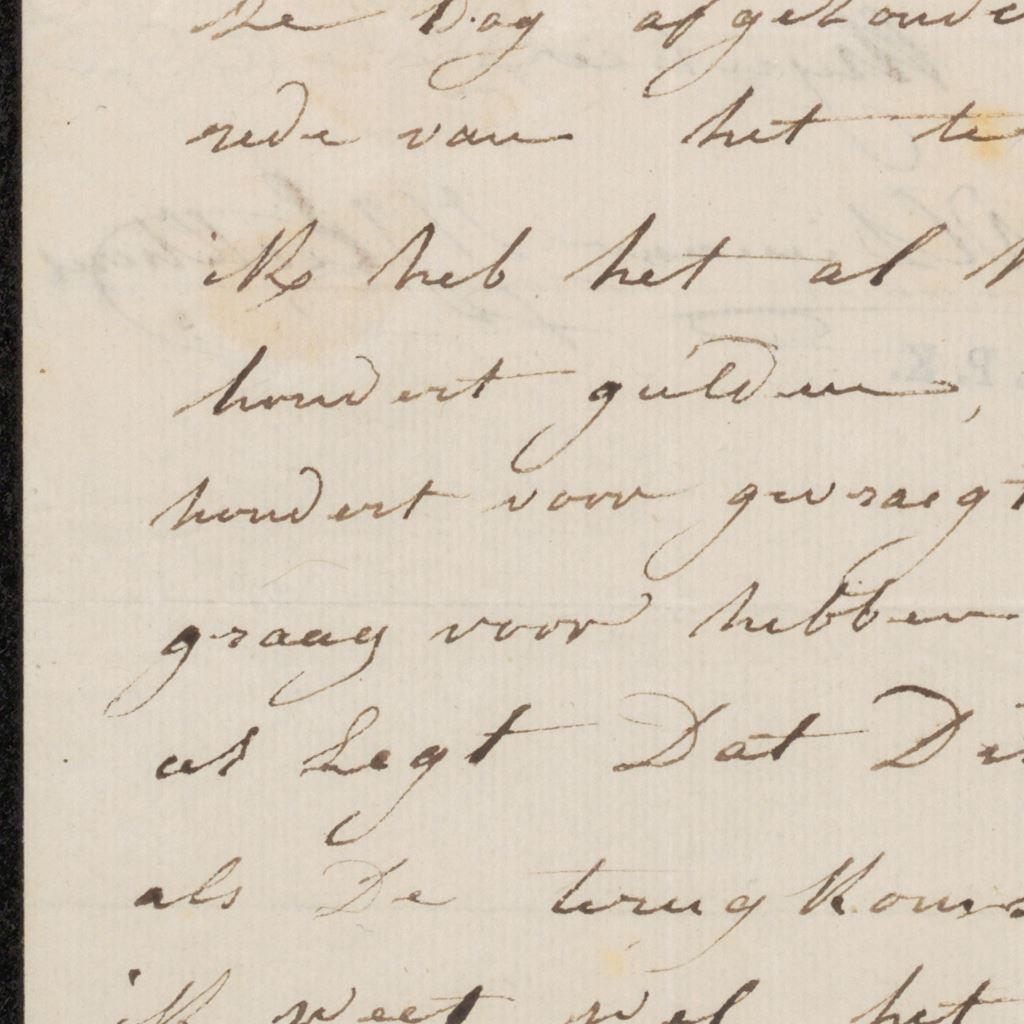 De Dag afgehoude
rede van het te
ik heb het al
hondert gulden,
hondert voor gevraegt
graag voor hebben
als Legt Dat Di
als De terug Kom
ik weet wel het